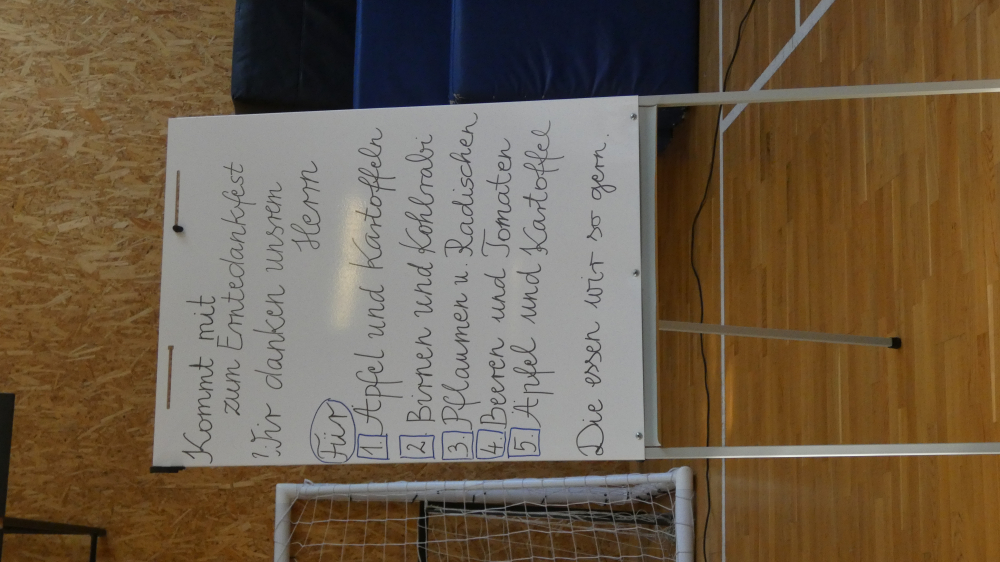 Kommt mit
zum Erntedankfest
Wir danken unsrem
Herrn
Für
1. Äpfel und Kartoffeln
2. Birnen und Kohlrabi
3. Pflaumen u. Radischen
4. Beeren und Tomaten
5. Äpfel und Kartoffel
Die essen wir so gern.